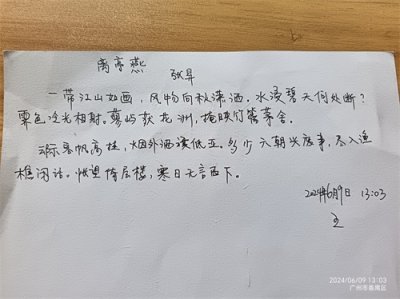 离亭燕
张昇
一带江山如画，风物向秋潇洒。水浸碧天何处断？
霁色冷光相射。蓼屿荻花洲，掩映竹篱茅舍。
云际客帆高挂，烟外酒旗低亚。多少六朝兴废事，尽入渔
樵闲话。怅望倚层楼，寒日无言西下。
2024年6月9日 13:03
2024/06/09 13:03
广州市番禺区